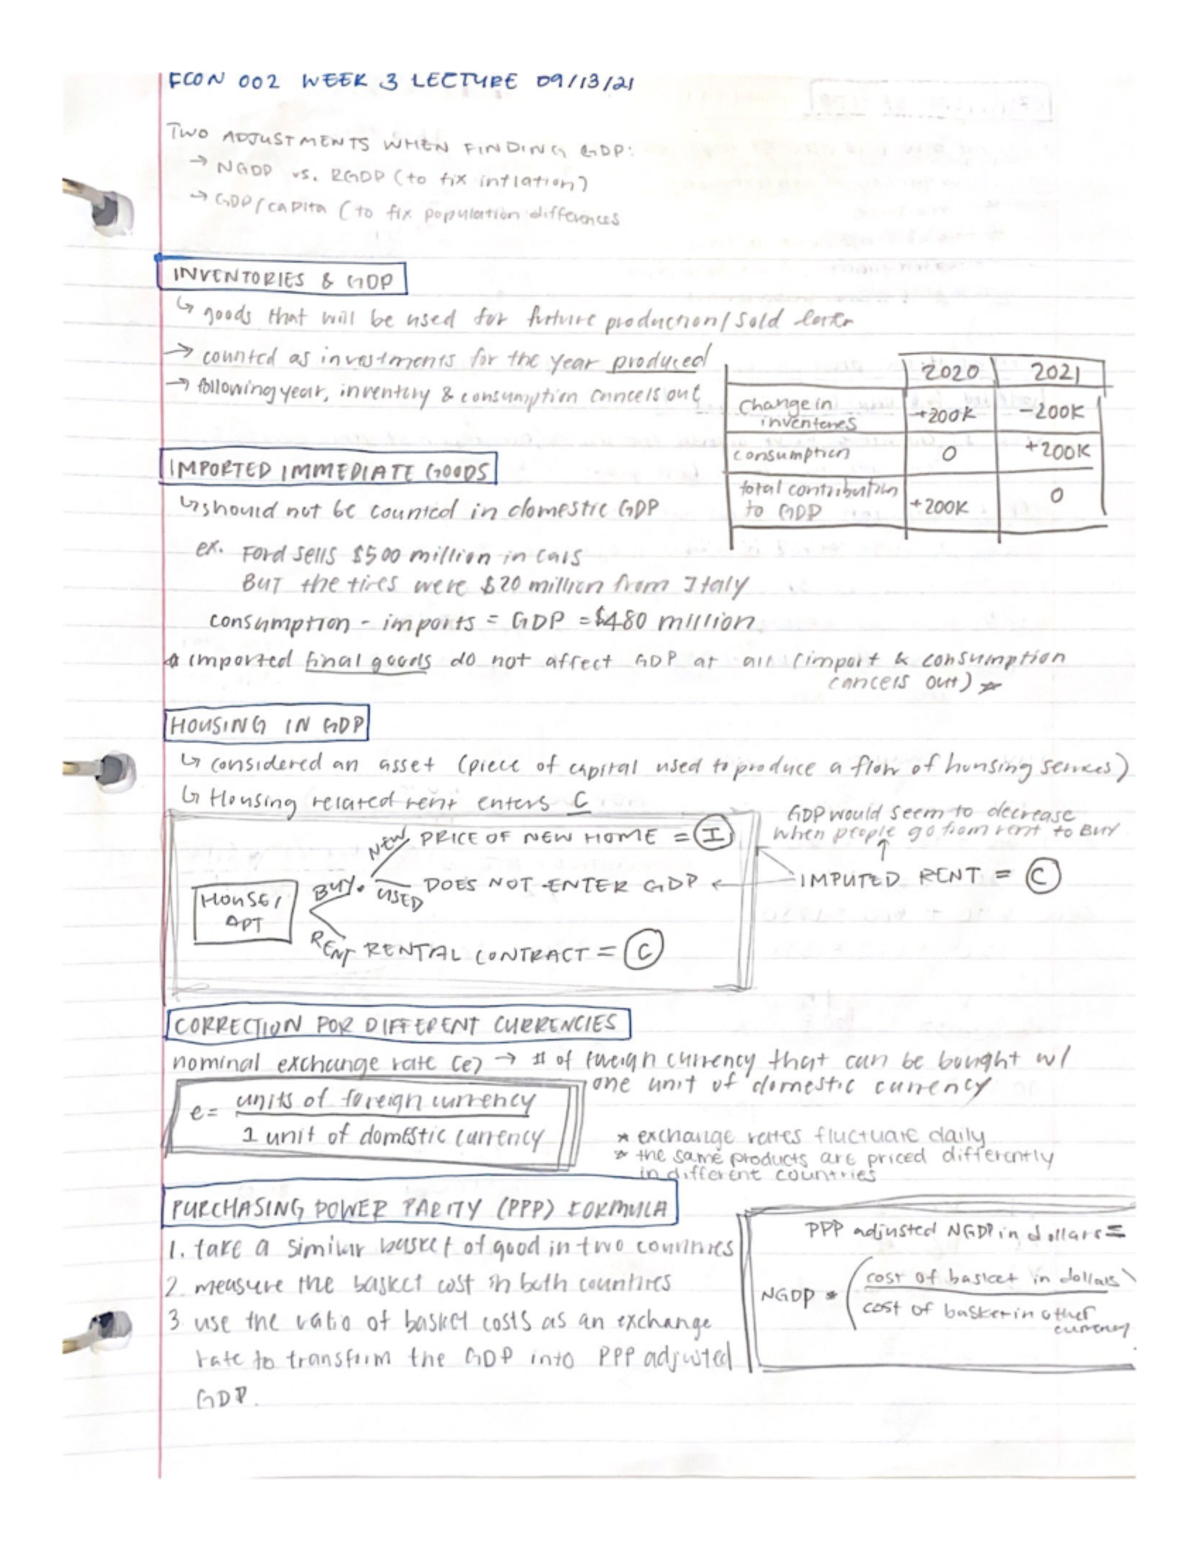 ECON 002 WEEK 3 LECTURE 09/13/21
TWO ADJUSTMENTS WHEN FINDING GDP:
→ NGDP vs. RGDP (to fix inflation)
→ GDP/capita (to fix population differences
INVENTORIES & GDP
↳ goods that will be used for future production/sold later
→ counted as investments for the year produced
→ following year, inventory & consumption cancels out
2020 2021
change in inventories +200K -200K
consumption 0 +200K
total contribution to GDP +200K 0
IMPORTED IMMEDIATE GOODS
↳ should not be counted in domestic GDP
ex. Ford sells $500 million in cars
BUT the tires were $20 million from Italy
consumption - imports = GDP = $480 million
* imported final goods do not affect GDP at all (import & consumption
cancels out) *
HOUSING IN GDP
↳ considered an asset (piece of capital used to produce a flow of housing services)
↳ Housing related rent enters C
HOUSE/
APT
BUY
NEW PRICE OF NEW HOME = I
USED DOES NOT ENTER GDP
RENT RENTAL CONTRACT = C
GDP would seem to decrease
when people go from rent to BUY
IMPUTED RENT = C
CORRECTION FOR DIFFERENT CURRENCIES
nominal exchange rate (e) → # of foreign currency that can be bought w/
one unit of domestic currency
e = units of foreign currency
1 unit of domestic currency
* exchange rates fluctuate daily
* the same products are priced differently
in different countries
PURCHASING POWER PARITY (PPP) FORMULA
1. take a similar basket of good in two countries
2. measure the basket cost in both countries
3 use the ratio of basket costs as an exchange
rate to transform the GDP into PPP adjusted
GDP.
PPP adjusted NGDP in dollars =
NGDP * (cost of basket in dollars
cost of basket in other
currency